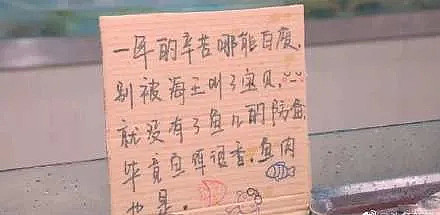 一年的辛苦哪能白废，
别被海王叫了宝贝，
就没有了鱼儿的防备
毕竟鱼饵诅香，鱼肉
也是。